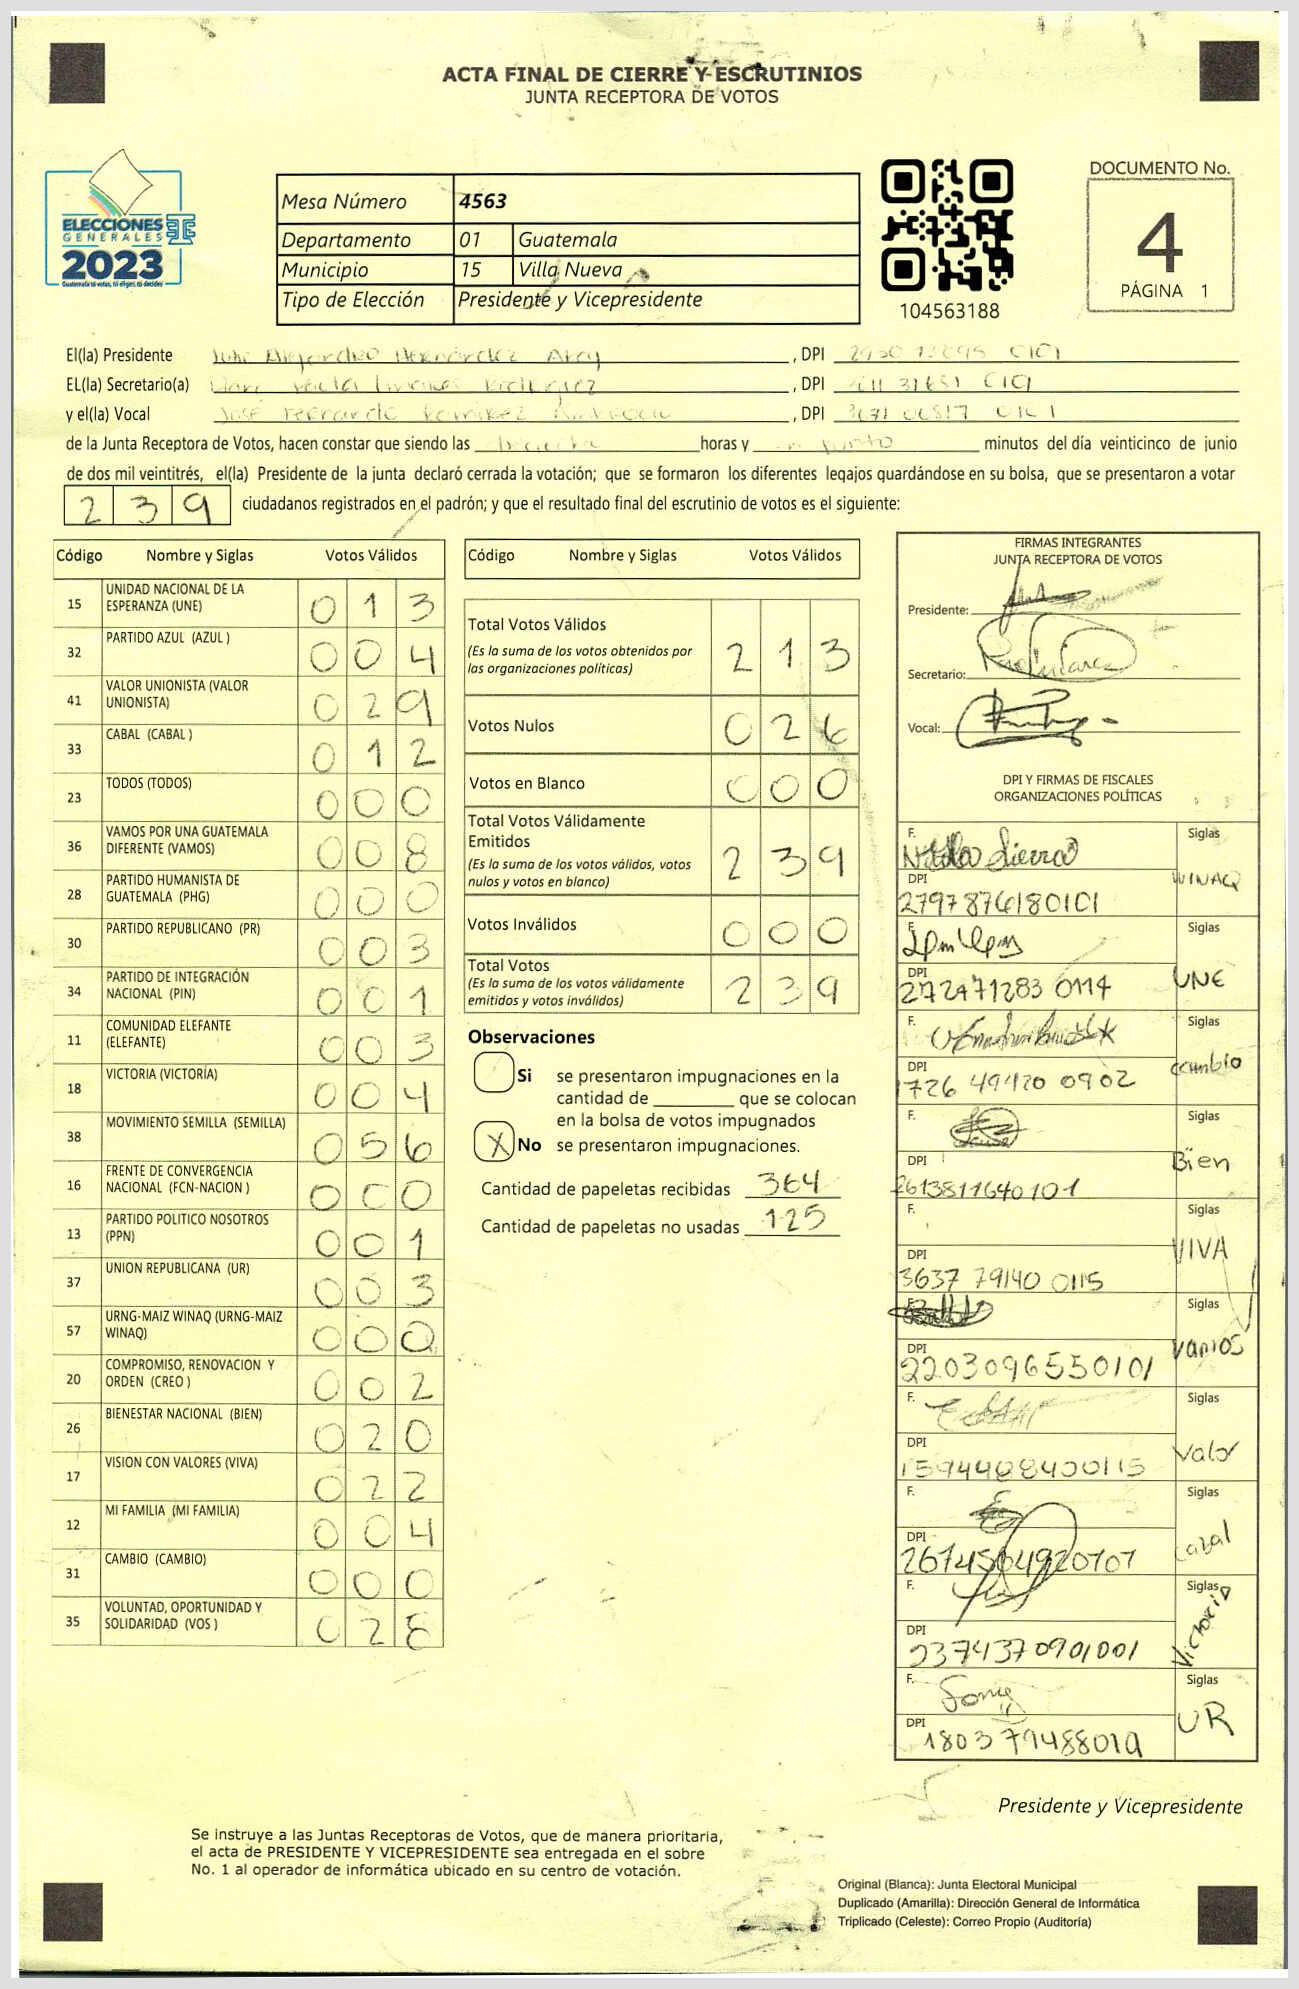 ACTA FINAL DE CIERRE Y ESCRUTINIOS
JUNTA RECEPTORA DE VOTOS
ELECCIONES
GENERALES
2023
Guatemala tú votas, tú eliges, tú decides
Mesa Número 4563
Departamento 01 Guatemala
Municipio 15 Villa Nueva
Tipo de Elección Presidente y Vicepresidente
104563188
DOCUMENTO No.
4
PÁGINA 1
El(la) Presidente Julio Alejandro Hernández , DPI
EL(la) Secretario(a) , DPI
y el(la) Vocal José Fernando Ramírez , DPI
de la Junta Receptora de Votos, hacen constar que siendo las horas y minutos del día veinticinco de junio
de dos mil veintitrés, el(la) Presidente de la junta declaró cerrada la votación; que se formaron los diferentes legajos quardándose en su bolsa, que se presentaron a votar
239 ciudadanos registrados en el padrón; y que el resultado final del escrutinio de votos es el siguiente:
Código Nombre y Siglas Votos Válidos
15 UNIDAD NACIONAL DE LA ESPERANZA (UNE) 0 1 3
32 PARTIDO AZUL (AZUL ) 0 0 4
41 VALOR UNIONISTA (VALOR UNIONISTA) 0 2 9
33 CABAL (CABAL ) 0 1 2
23 TODOS (TODOS) 0 0 0
36 VAMOS POR UNA GUATEMALA DIFERENTE (VAMOS) 0 0 8
28 PARTIDO HUMANISTA DE GUATEMALA (PHG) 0 0 0
30 PARTIDO REPUBLICANO (PR) 0 0 3
34 PARTIDO DE INTEGRACIÓN NACIONAL (PIN) 0 0 1
11 COMUNIDAD ELEFANTE (ELEFANTE) 0 0 3
18 VICTORIA (VICTORÍA) 0 0 4
38 MOVIMIENTO SEMILLA (SEMILLA) 0 5 6
16 FRENTE DE CONVERGENCIA NACIONAL (FCN-NACION ) 0 0 0
13 PARTIDO POLITICO NOSOTROS (PPN) 0 0 1
37 UNION REPUBLICANA (UR) 0 0 3
57 URNG-MAIZ WINAQ (URNG-MAIZ WINAQ) 0 0 0
20 COMPROMISO, RENOVACION Y ORDEN (CREO ) 0 0 2
26 BIENESTAR NACIONAL (BIEN) 0 2 0
17 VISION CON VALORES (VIVA) 0 2 2
12 MI FAMILIA (MI FAMILIA) 0 0 4
31 CAMBIO (CAMBIO) 0 0 0
35 VOLUNTAD, OPORTUNIDAD Y SOLIDARIDAD (VOS ) 0 2 8
Código Nombre y Siglas Votos Válidos
Total Votos Válidos 2 1 3
(Es la suma de los votos obtenidos por
las organizaciones políticas)
Votos Nulos 0 2 6
Votos en Blanco 0 0 0
Total Votos Válidamente
Emitidos 2 3 9
(Es la suma de los votos válidos, votos
nulos y votos en blanco)
Votos Inválidos 0 0 0
Total Votos 2 3 9
(Es la suma de los votos válidamente
emitidos y votos inválidos)
Observaciones
Si se presentaron impugnaciones en la
cantidad de ________ que se colocan
en la bolsa de votos impugnados
X No se presentaron impugnaciones.
Cantidad de papeletas recibidas 364
Cantidad de papeletas no usadas 125
FIRMAS INTEGRANTES
JUNTA RECEPTORA DE VOTOS
Presidente:
Secretario:
Vocal:
DPI Y FIRMAS DE FISCALES
ORGANIZACIONES POLÍTICAS
F. Siglas WINAQ
DPI 2797876180101
F. Siglas UNE
DPI 272471283 0114
F. Siglas cambio
DPI 1726 49420 0902
F. Siglas Bien
DPI 2613811640101
F. Siglas VIVA
DPI 3637 79140 0115
F. Siglas Varios
DPI 2203096550101
F. Siglas Valor
DPI 1594408400115
F. Siglas
DPI
F. Siglas Victoria
DPI 2374370901001
F. Siglas UR
DPI 1803 79488019
Presidente y Vicepresidente
Se instruye a las Juntas Receptoras de Votos, que de manera prioritaria,
el acta de PRESIDENTE Y VICEPRESIDENTE sea entregada en el sobre
No. 1 al operador de informática ubicado en su centro de votación.
Original (Blanca): Junta Electoral Municipal
Duplicado (Amarilla): Dirección General de Informática
Triplicado (Celeste): Correo Propio (Auditoría)